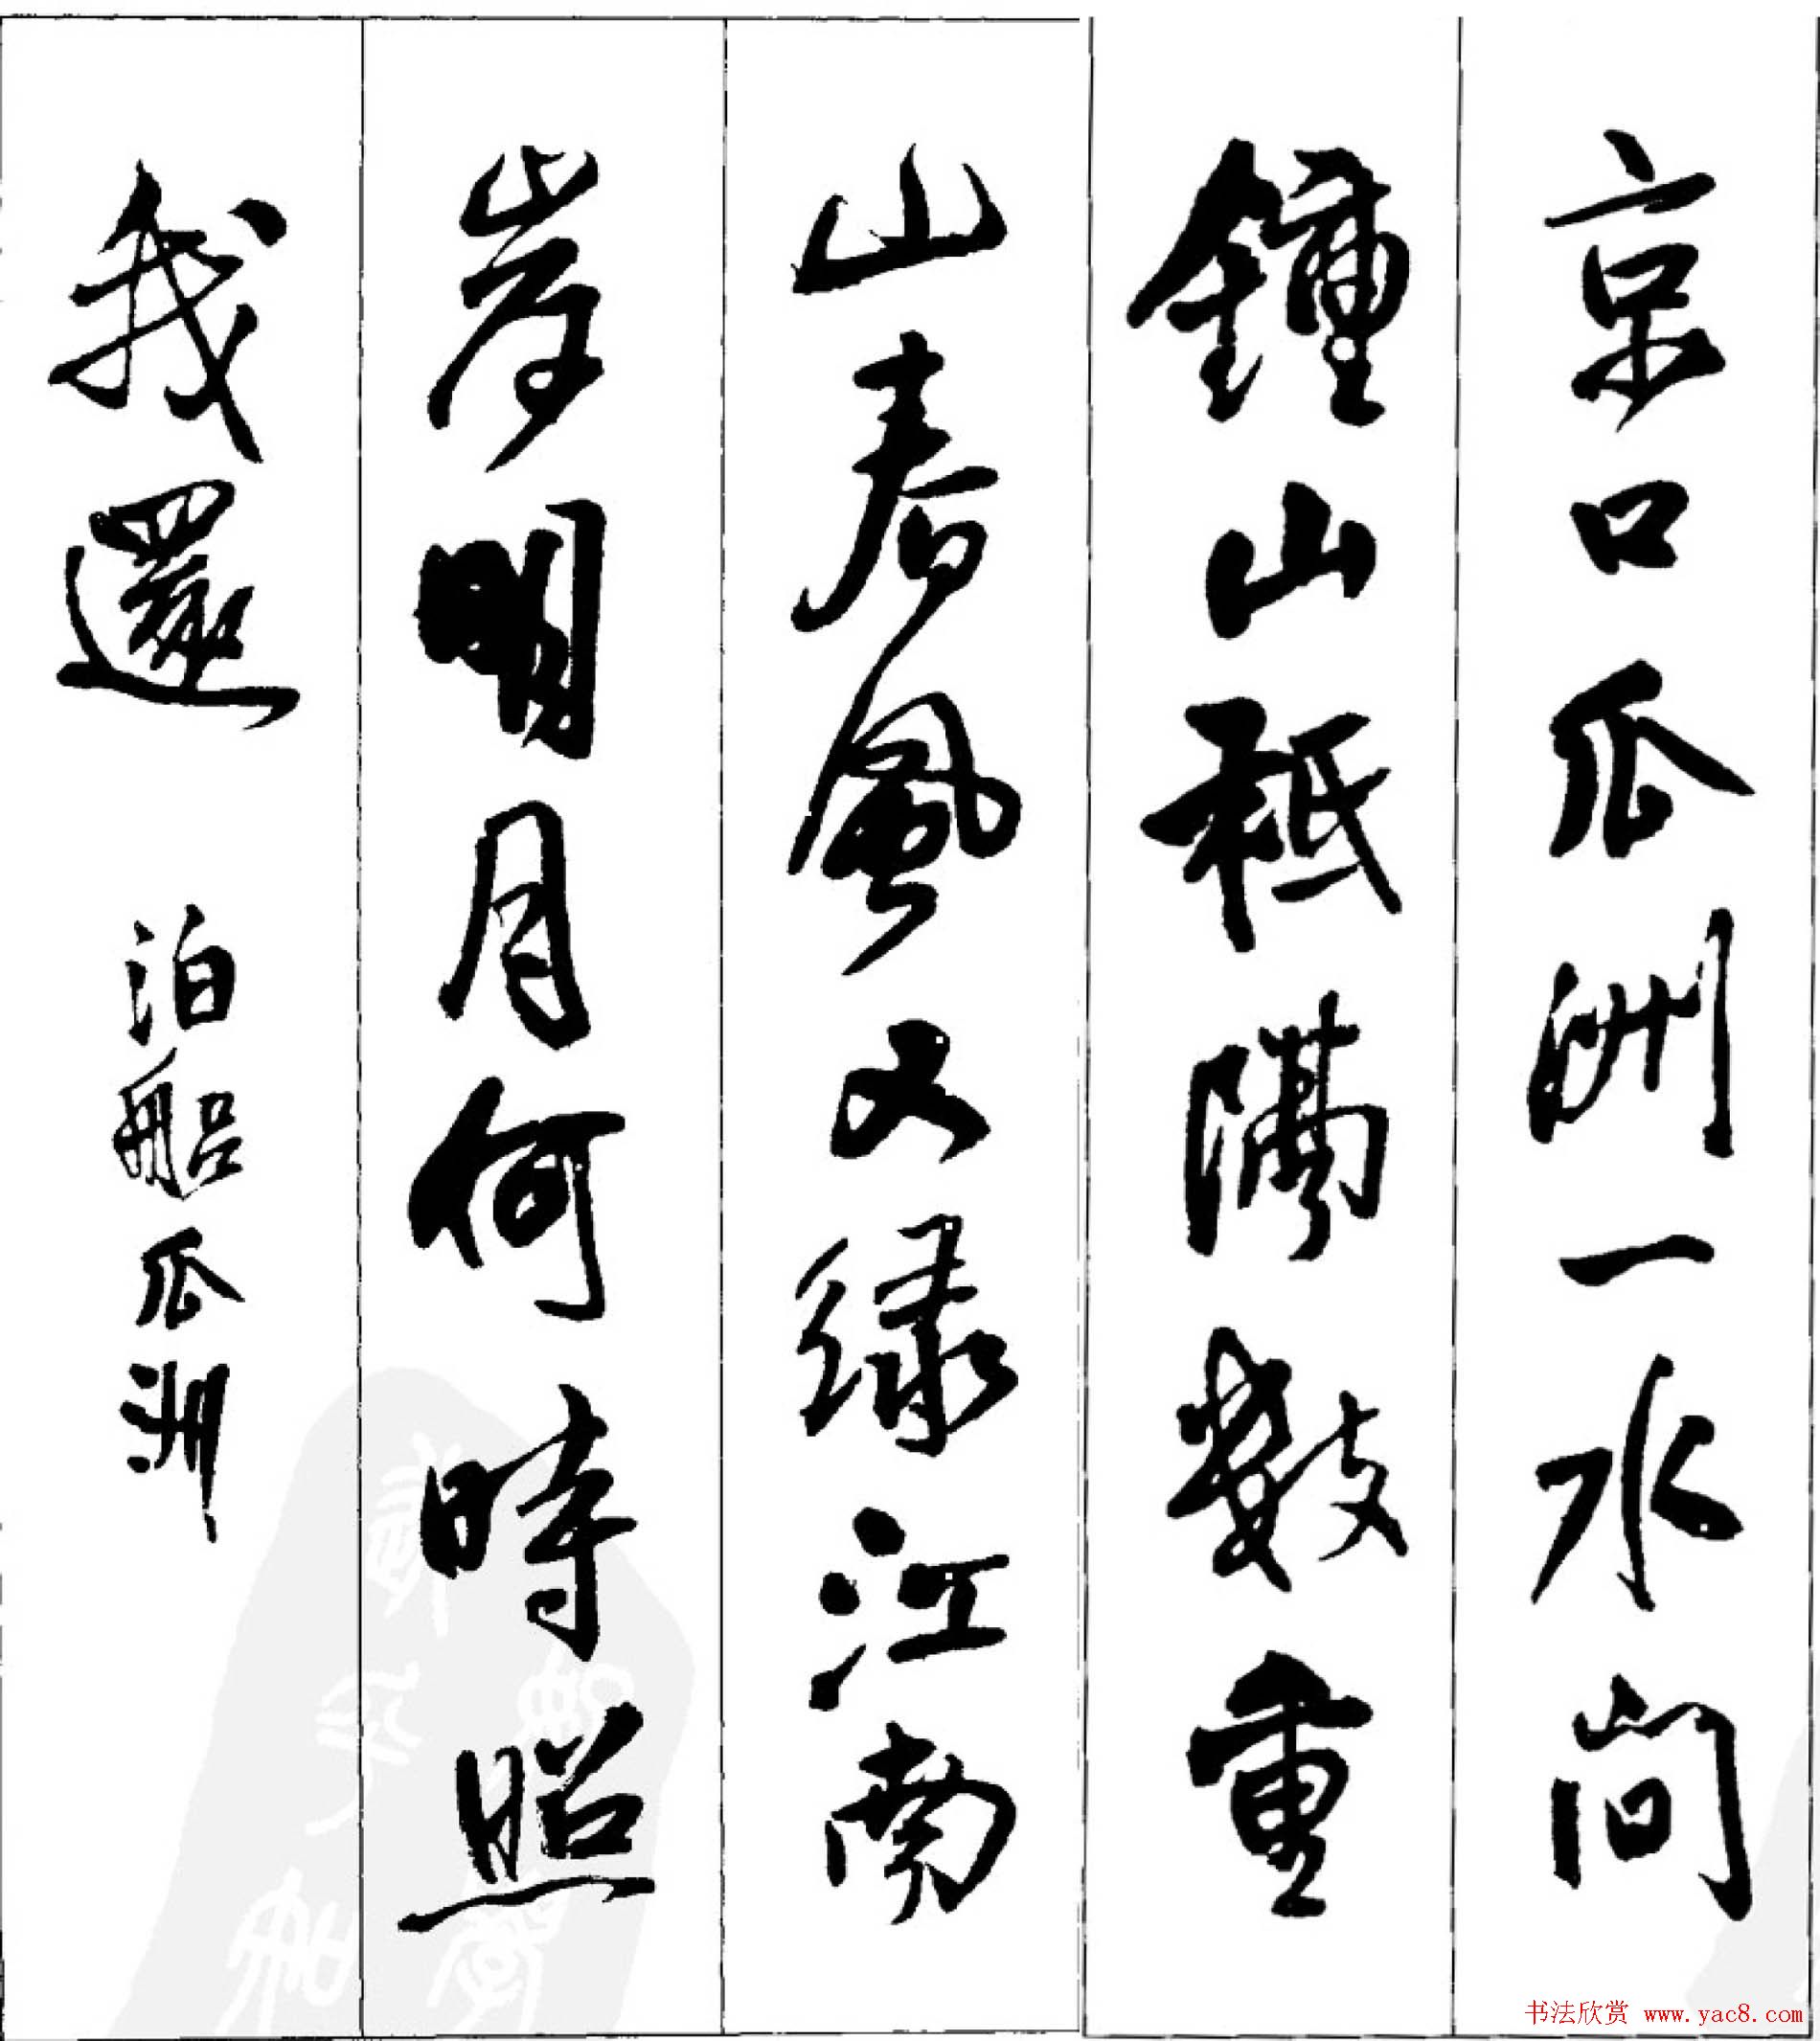 京口瓜洲一水間
鍾山秪隔數重
山春風又緑江南
岸明月何時照
我還 泊船瓜洲
书法欣赏 www.yac8.com